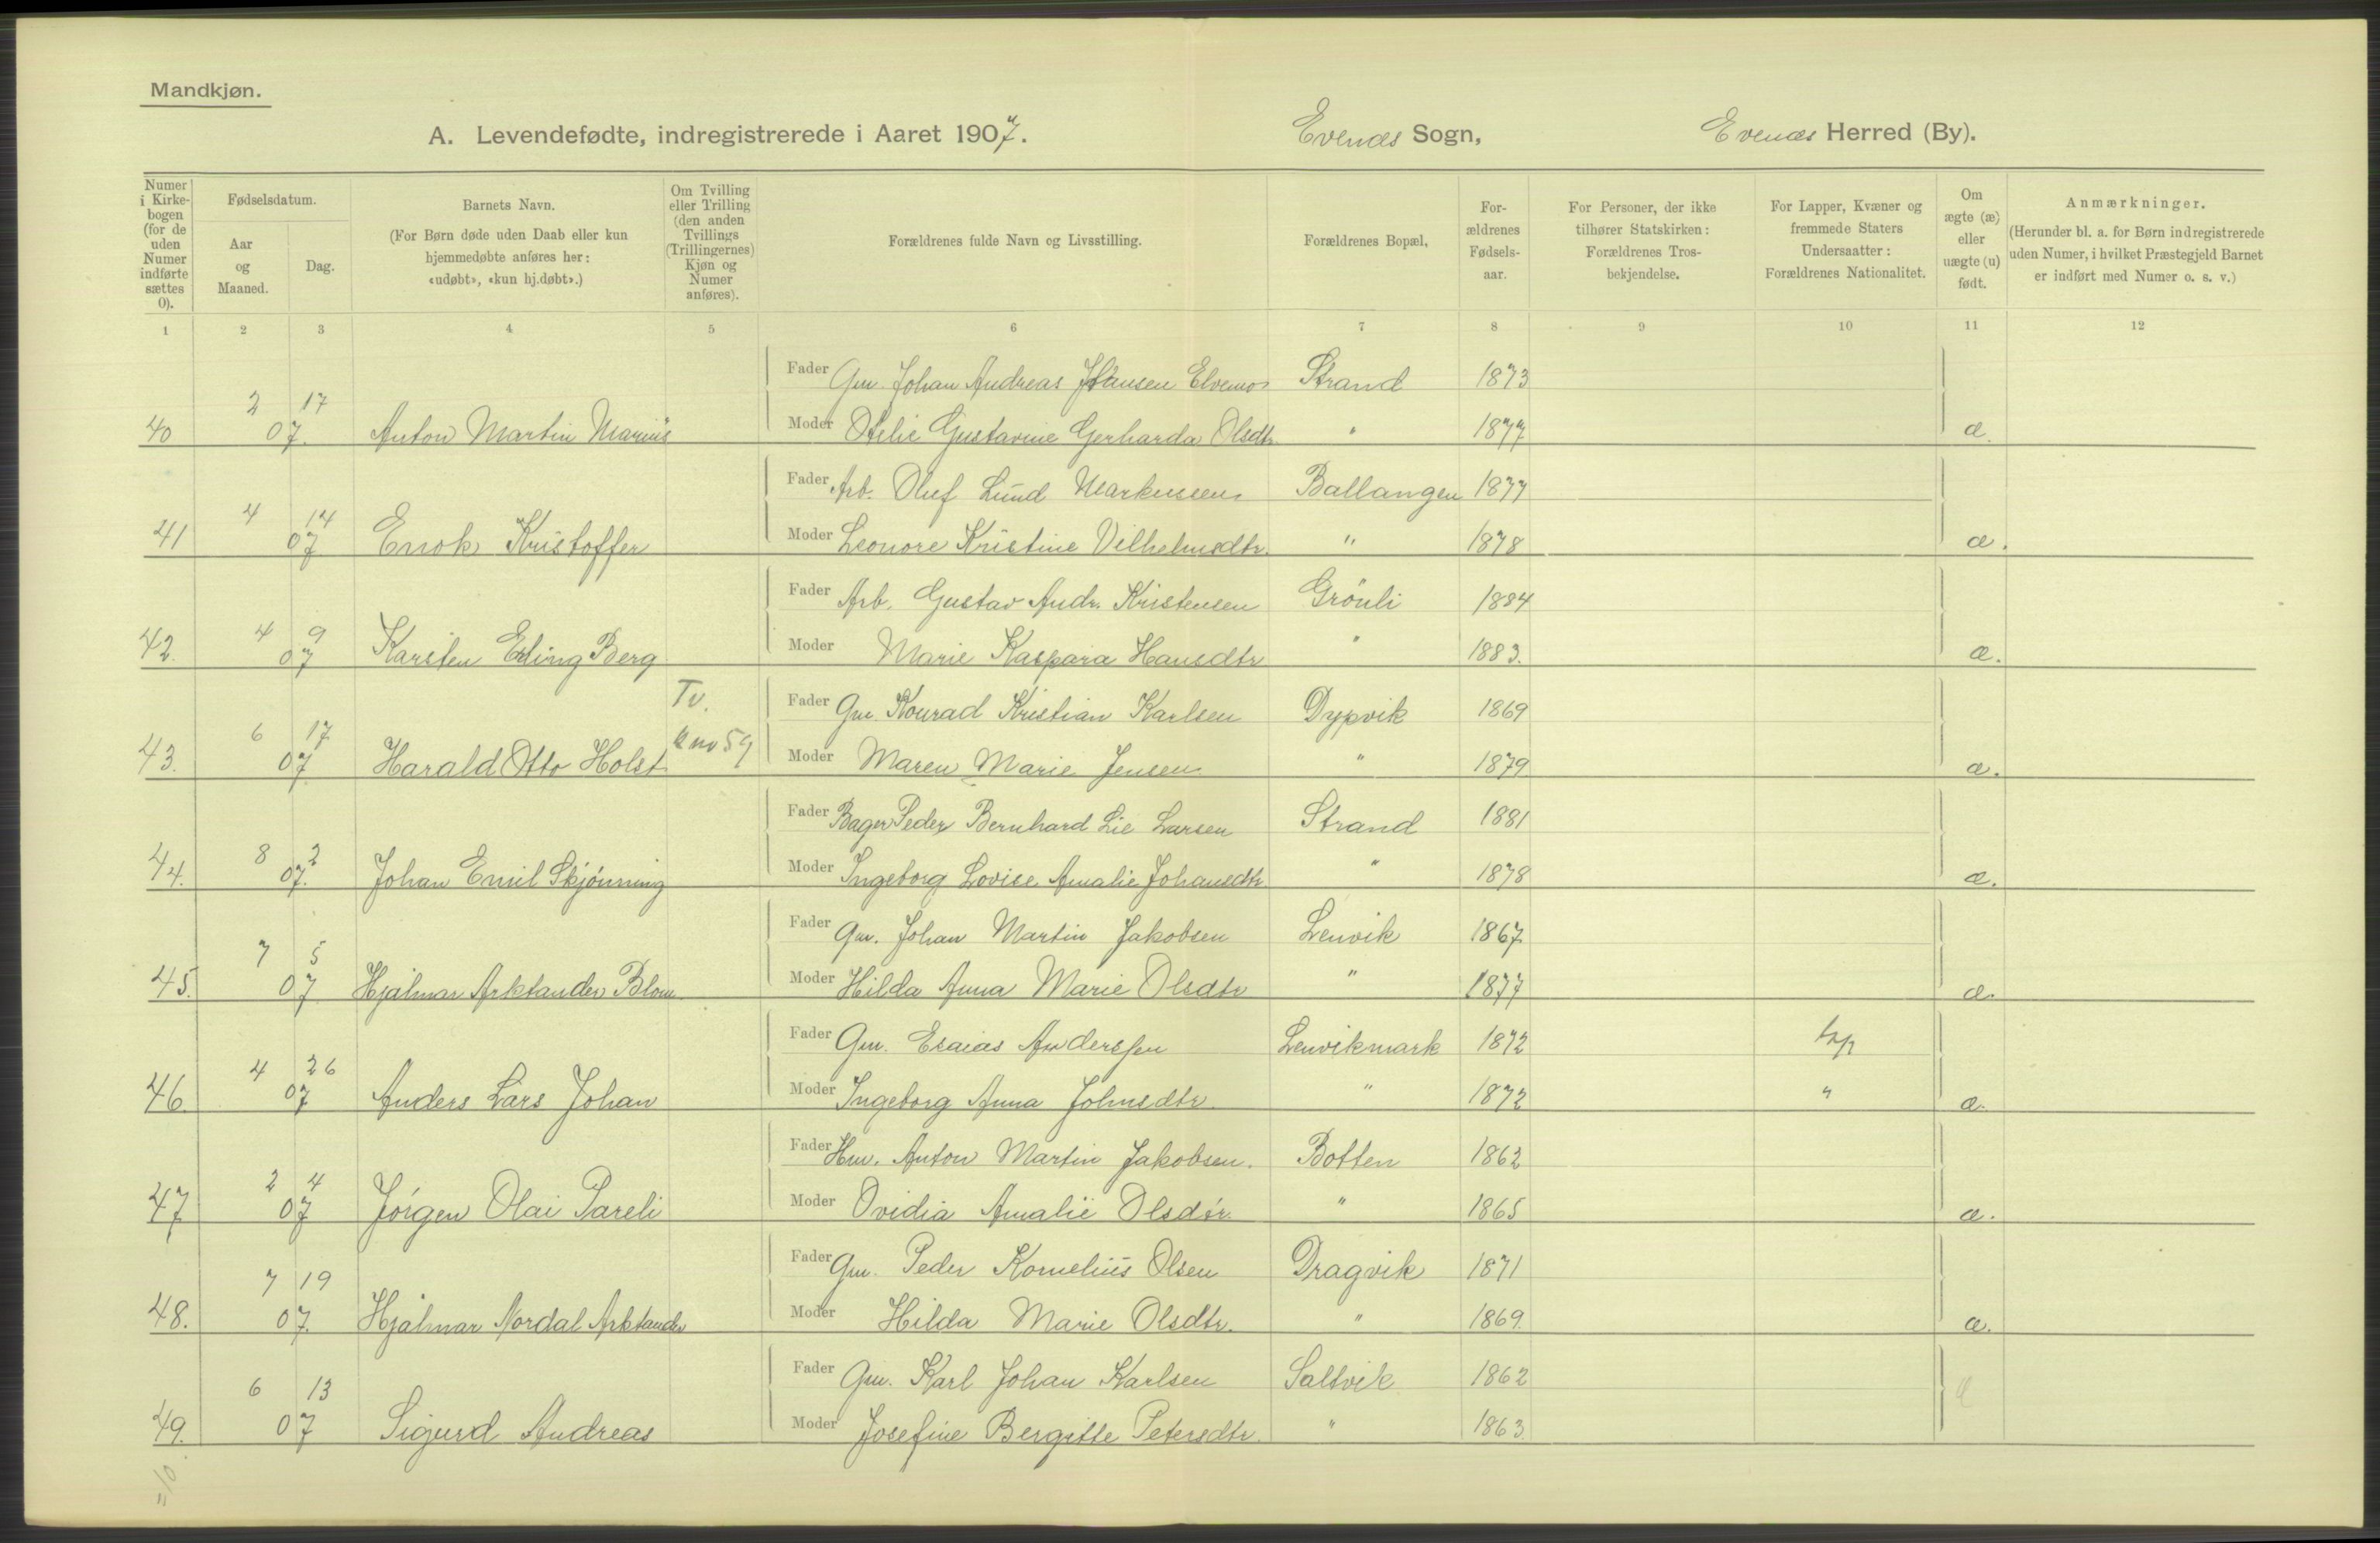 Mandkjøn.
A. Levendefødte, indregistrerede i Aaret 1907. Evenes Sogn, Evenes Herred (By).
Numer i Kirkebogen (for de uden Numer indførte sættes 0).
Fødselsdatum.
Aar og Maaned.
Dag.
Barnets Navn.
(For Børn døde uden Daab eller kun hjemmedøbte anføres her: «udøbt», «kun hj.døbt».)
Om Tvilling eller Trilling (den anden Tvillings (Trillingernes) Kjøn og Numer anføres).
Forældrenes fulde Navn og Livsstilling.
Forældrenes Bopæl,
For-ældrenes Fødsels-aar.
For Personer, der ikke tilhører Statskirken: Forældrenes Tros-bekjendelse.
For Lapper, Kvæner og fremmede Staters Undersaatter: Forældrenes Nationalitet.
Om ægte (æ) eller uægte (u) født.
Anmærkninger.
(Herunder bl. a. for Børn indregistrerede uden Numer, i hvilket Præstegjeld Barnet er indført med Numer o. s. v.)
1 2 3 4 5 6 7 8 9 10 11 12
Fader Gm. Johan Andreas Johansen Elvemo Strand 1873
2 17
40 07. Anton Martin Marius Moder Otelie Gustavine Gerharda Olsdtr. " 1877 æ.
Fader Arb. Oluf Lund Markussen Ballangen 1877
4 14
41 07 Enok Kristoffer Moder Leonore Kristine Vilhelmsdtr. " 1878 æ.
Fader Arb. Gustav Andr. Kristensen Grönli 1884
4 9
42. 07 Karsten Erling Berg Moder Marie Kaspara Hansdtr " 1883. æ.
Tv.
Fader Gm. Konrad Kristian Karlsen Dypvik 1869
6 17
43. 07 Harald Otto Holst K no 59 Moder Maren Marie Jensen " 1879 æ.
Fader Bager Peder Bernhard Lie Larsen Strand 1881
8 2
44. 07. Johan Emil Skjönning Moder Ingeborg Lovise Amalie Johansdtr. " 1878 æ.
Fader Gm. Johan Martin Jakobsen Lenvik 1867
7 5
45. 07 Hjalmar Arktander Blom Moder Hilda Anna Marie Olsdtr " 1877 æ.
Fader Gm. Esaias Anderssen Lenvikmark 1872 lap
4 26
46 07 Anders Lars Johan Moder Ingeborg Anna Johnsdtr. " 1872 " æ.
Fader Hm. Anton Martin Jakobsen. Botten 1862
2 4
47 07 Jörgen Olai Pareli Moder Ovidia Amalie Olsdtr. " 1865 æ.
Fader Gm. Peder Kornelius Olsen Dragvik 1871
7 19
48. 07. Hjalmar Nordal Arktander Moder Hilda Marie Olsdtr. " 1869. æ.
Fader Gm. Karl Johan Karlsen Saltvik 1862
6 13
49. 07 Sigurd Andreas Moder Josefine Bergitte Petersdtr. " 1863.
=10